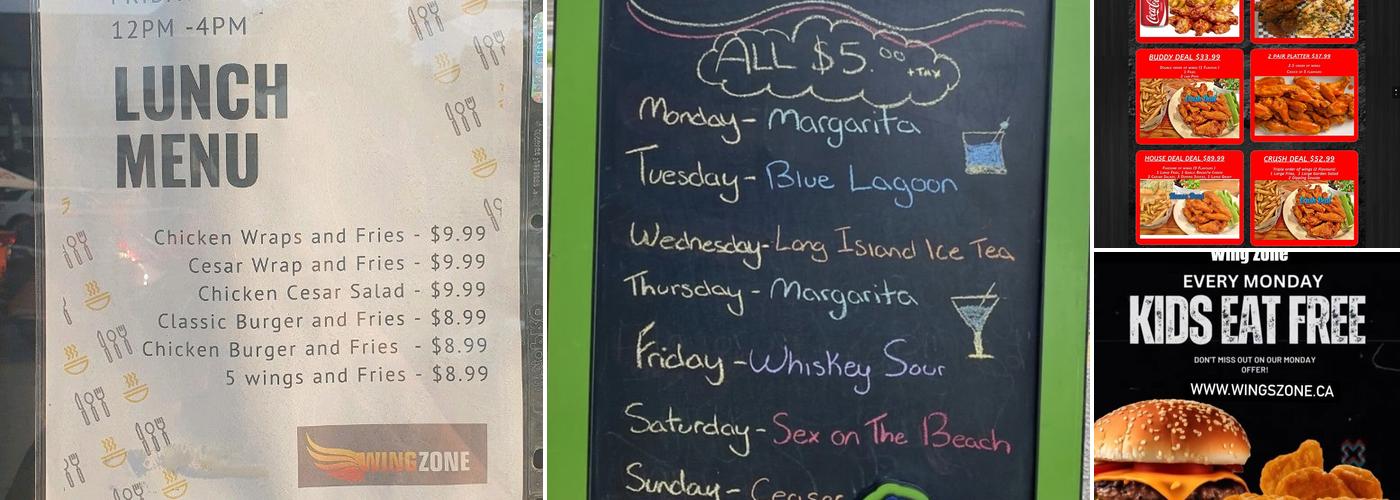 12PM -4PM
LUNCH
MENU
Chicken Wraps and Fries - $9.99
Cesar Wrap and Fries - $9.99
Chicken Cesar Salad - $9.99
Classic Burger and Fries - $8.99
Chicken Burger and Fries - $8.99
5 wings and Fries - $8.99
WINGZONE
ALL $5.00
+TAX
Monday - Margarita
Tuesday - Blue Lagoon
Wednesday - Long Island Ice Tea
Thursday - Margarita
Friday - Whiskey Sour
Saturday - Sex on The Beach
Sunday - Ceasar
Coca-Cola
BUDDY DEAL $33.99
2 PAIR PLATTER $37.99
HOUSE DEAL DEAL $89.99
CRUSH DEAL $52.99
Wing Zone
EVERY MONDAY
KIDS EAT FREE
DON'T MISS OUT ON OUR MONDAY
OFFER!
WWW.WINGSZONE.CA